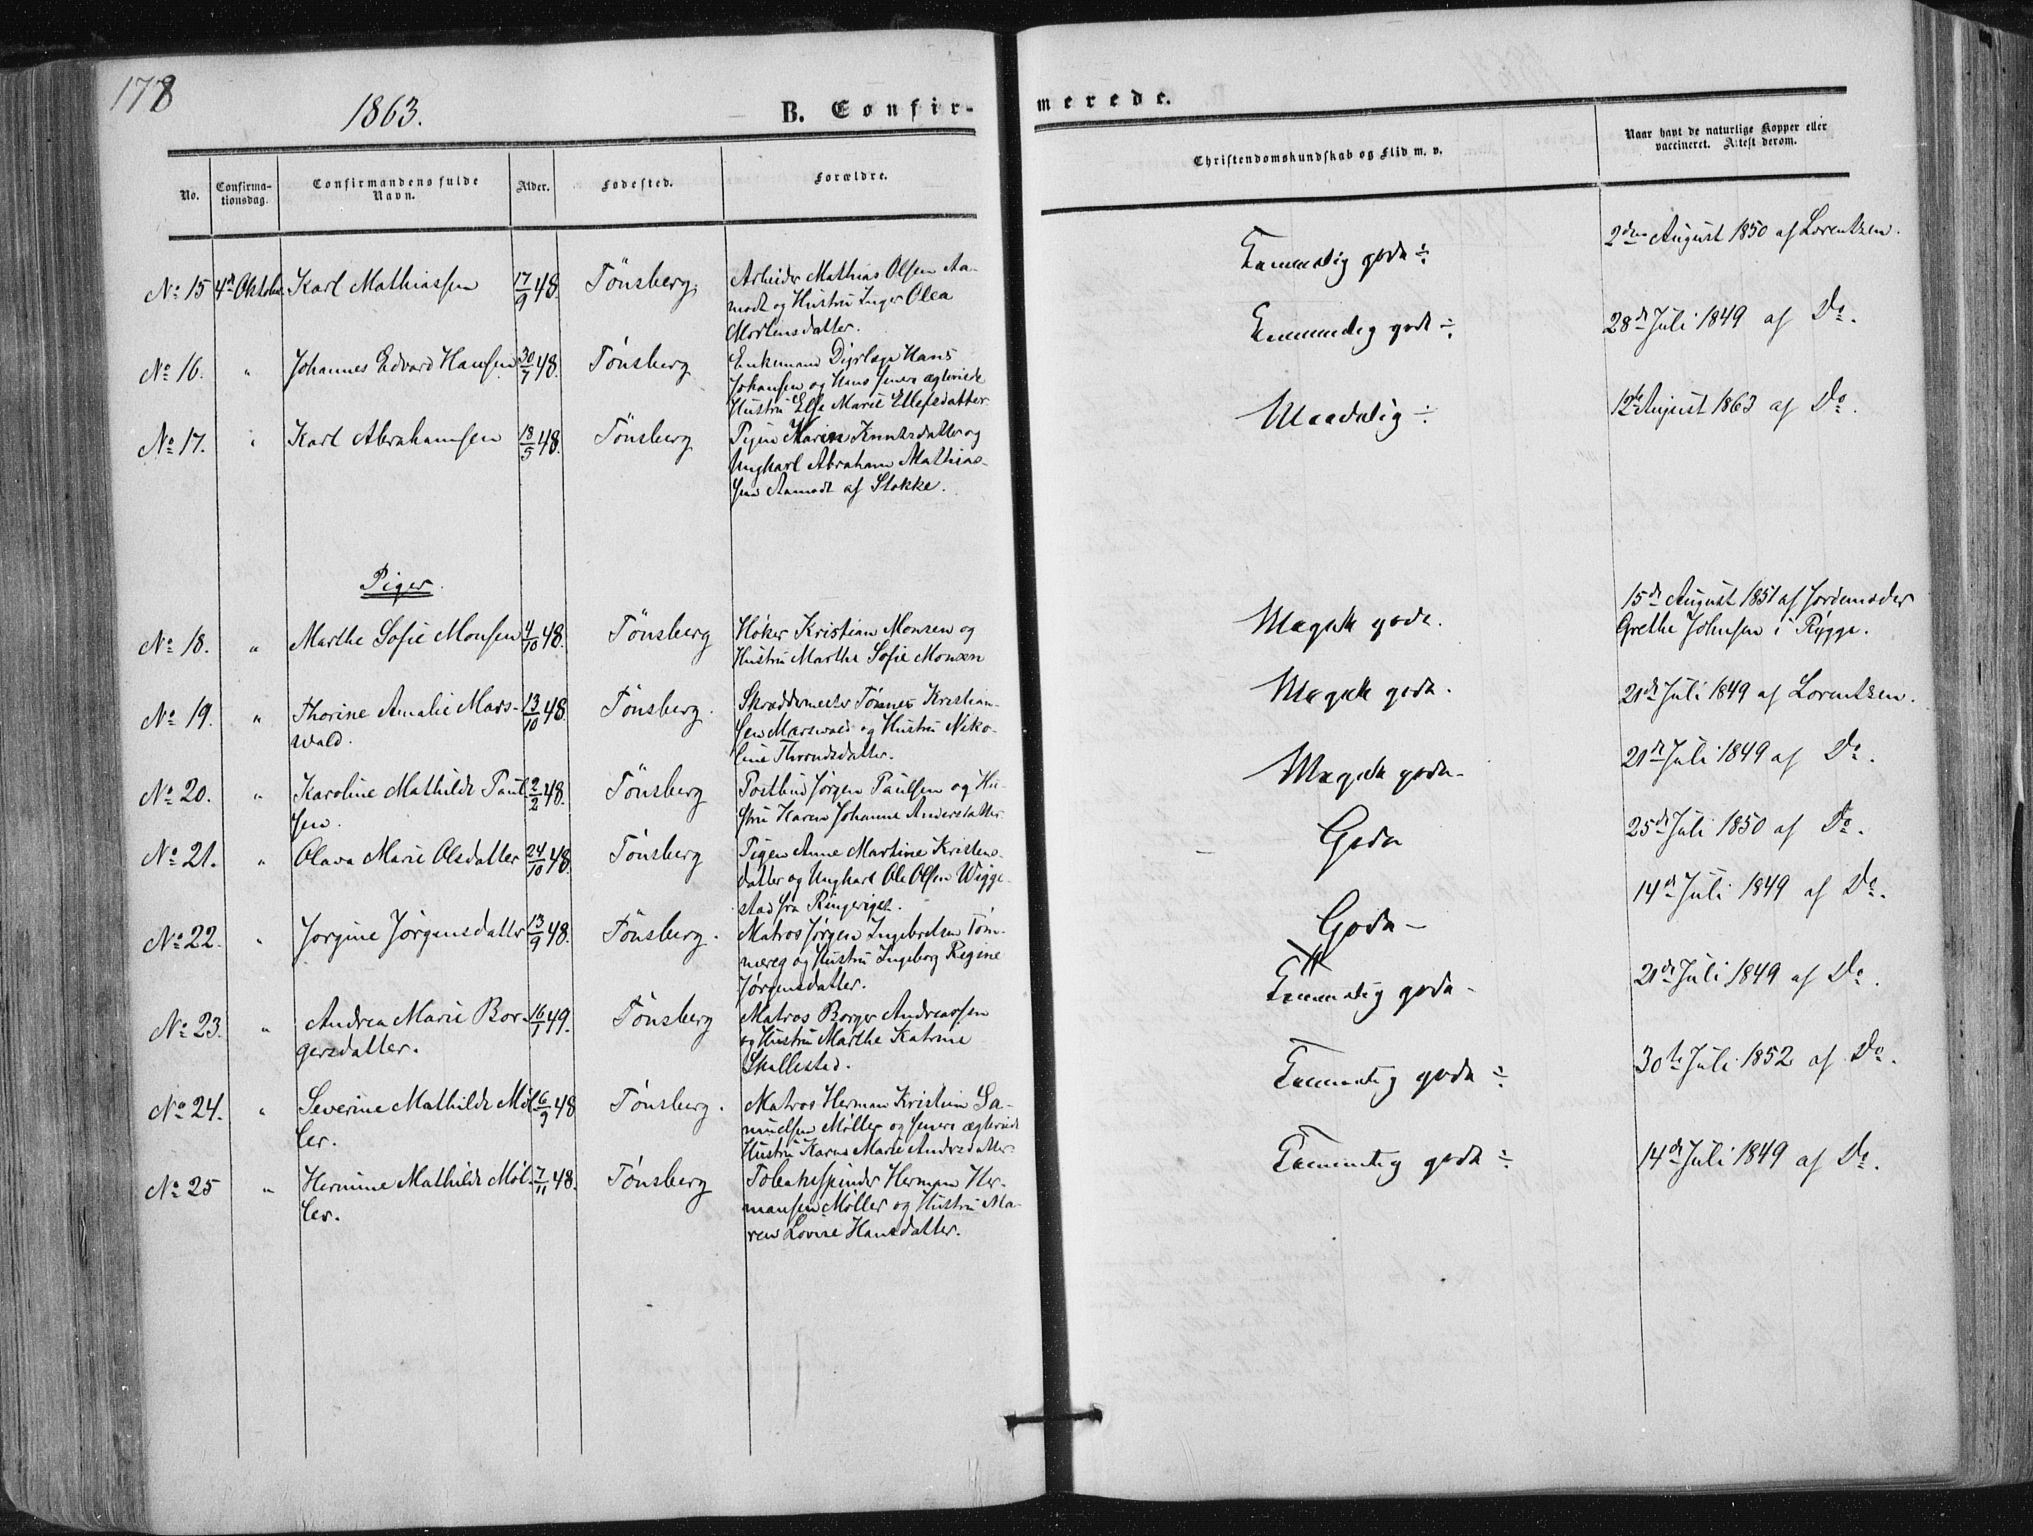 178
1863.
B. Confir-
merede.
No.
Confirma-
tionsdag.
Confirmandens fulde
Navn.
Alder.
Fødested.
Forældre.
Christendomskundskab og Flid m. v.
Naar havt de naturlige Kopper eller
vaccineret. Attest derom.
No 15 4de Oktober Karl Mathiassen 17/9 48. Tönsberg. Arbeider Mathias Olsen Aa-
modt og Hustru Inger Olea
Mortensdatter.
Temmelig gode ÷ 2den August 1850 af Lorentzen.
No 16. " Johannes Edvard Hansen 30/7 48. Tönsberg Enkemand Hans
Johansen og Hans senere ægteviede
Hustru Else Marie Ellefsdatter.
Temmelig gode ÷ 28de Juli 1849 af Do.
No 17. " Karl Abrahamsen 18/5 48. Tönsberg Pigen Karen Knutsdatter og
Ungkarl Abraham Mathias-
sen Aamodt af Stokke.
Maadelig ÷ 12te August 1863 af Do.
Piger.
No 18. " Marthe Sofie Monsen 4/10 48. Tönsberg Høker Kristian Monsen og
Hustru Marthe Sofie Monsen
Meget gode. 15de August 1851 af Jordemoder
Grethe Johnsen i Rygge.
No 19. " Thorine Amalie Mars-
wald. 13/10 48. Tönsberg. Skreddermester Tønnes Kristian-
sen Marswald og Hustru Niko-
line Throndsdatter.
Meget gode. 21de Juli 1849 af Lorentzen.
No 20. " Karoline Mathilde Paul-
sen. 2/2 48. Tönsberg Postbud Jørgen Paulsen og Hu-
stru Karen Johanne Andersdatter
Meget gode - 21de Juli 1849 af Do.
No 21. " Olava Marie Olsdatter 24/10 48. Tönsberg Pigen Anne Martine Kristens-
datter og Ungkarl Ole Olsen Wigge-
stad fra Ringeriget.
Gode 25de Juli 1850 af Do.
No 22. " Jorgine Jørgensdatter 13/9 48. Tönsberg. Matros Jørgen Ingebretsen Töm-
mereg og Hustru Ingeborg Regine
Jørgensdatter.
Gode - 14de Juli 1849 af Do.
No 23. " Andrea Marie Bor-
gersdatter. 16/1 49. Tönsberg Matros Borger Andreassen
og Hustru Marthe Katrine
Skallestad.
Temmelig gode - 21de Juli 1849 af Do.
No 24. " Severine Mathilde Møl-
ler. 16/9 48 Tönsberg. Matros Herman Kristian Sa-
muelsen Møller og senere ægteviede
Hustru Karen Marie Andersdatter
Temmelig gode ÷ 30te Juli 1852 af Do.
No 25 " Hermine Mathilde Møl-
ler. 7/11 48. Tönsberg Tobaksspinder Herman Her-
mansen Møller og Hustru Ma-
ren Lovise Hansdatter.
Temmelig gode ÷ 14de Juli 1849 af Do.